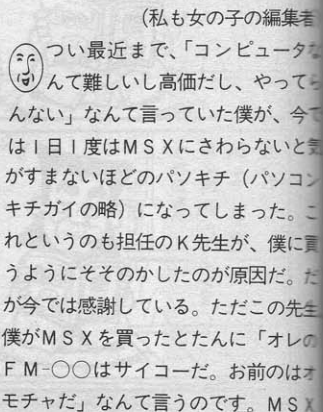 (私も女の子の編集者
つい最近まで、「コンピュータな
んて難しいし高価だし、やってら
んない」なんて言っていた僕が、今で
は1日1度はMSXにさわらないと気
がすまないほどのパソキチ（パソコン
キチガイの略）になってしまった。こ
れというのも担任のK先生が、僕に買
うようにそそのかしたのが原因だ。だ
が今では感謝している。ただこの先生
僕がMSXを買ったとたんに「オレの
FM-○○はサイコーだ。お前のはオ
モチャだ」なんて言うのです。MSX